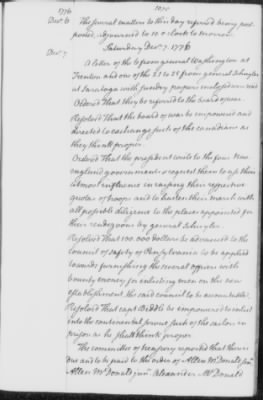 1776
1070
Dec.r 6 The several matters to this day referred being post
poned, Adjourned to 10 o Clock to morrow.
Saturday Dec.r 7. 1776
Dec.r 7 A letter of the 6 from general Washington at
Trenton and one of the 21 to 25 from general Schuyler
at Saratoga with sundry papers inclosed were read
Ordered That they be referred to the board of war.
Resolved That the board of war be empowered and
directed to exchange such of the canadians as
they think proper.
Ordered That the president write to the four New
england governments & request them to use their
utmost influence in raising their respective
quotas of troops and to hasten their march with
all possible diligence to the places appointed for
their rendezvous by general Schuyler.
Resolved That 100.000 dollars be advanced to the
council of safety of Pensylvania to be applied
towards furnishing the several officers with
bounty money for enlisting men on the new
establishment the said council to be accountable.
Resolved That capt Biddle be empowered to enlist
into the continental service such of the sailors in
prison as he shall think proper
The committee of treasury reported that there is
due and to be paid to the order of Allen McDonald sen.r
Allen McDonald jun.r Alexander McDonald